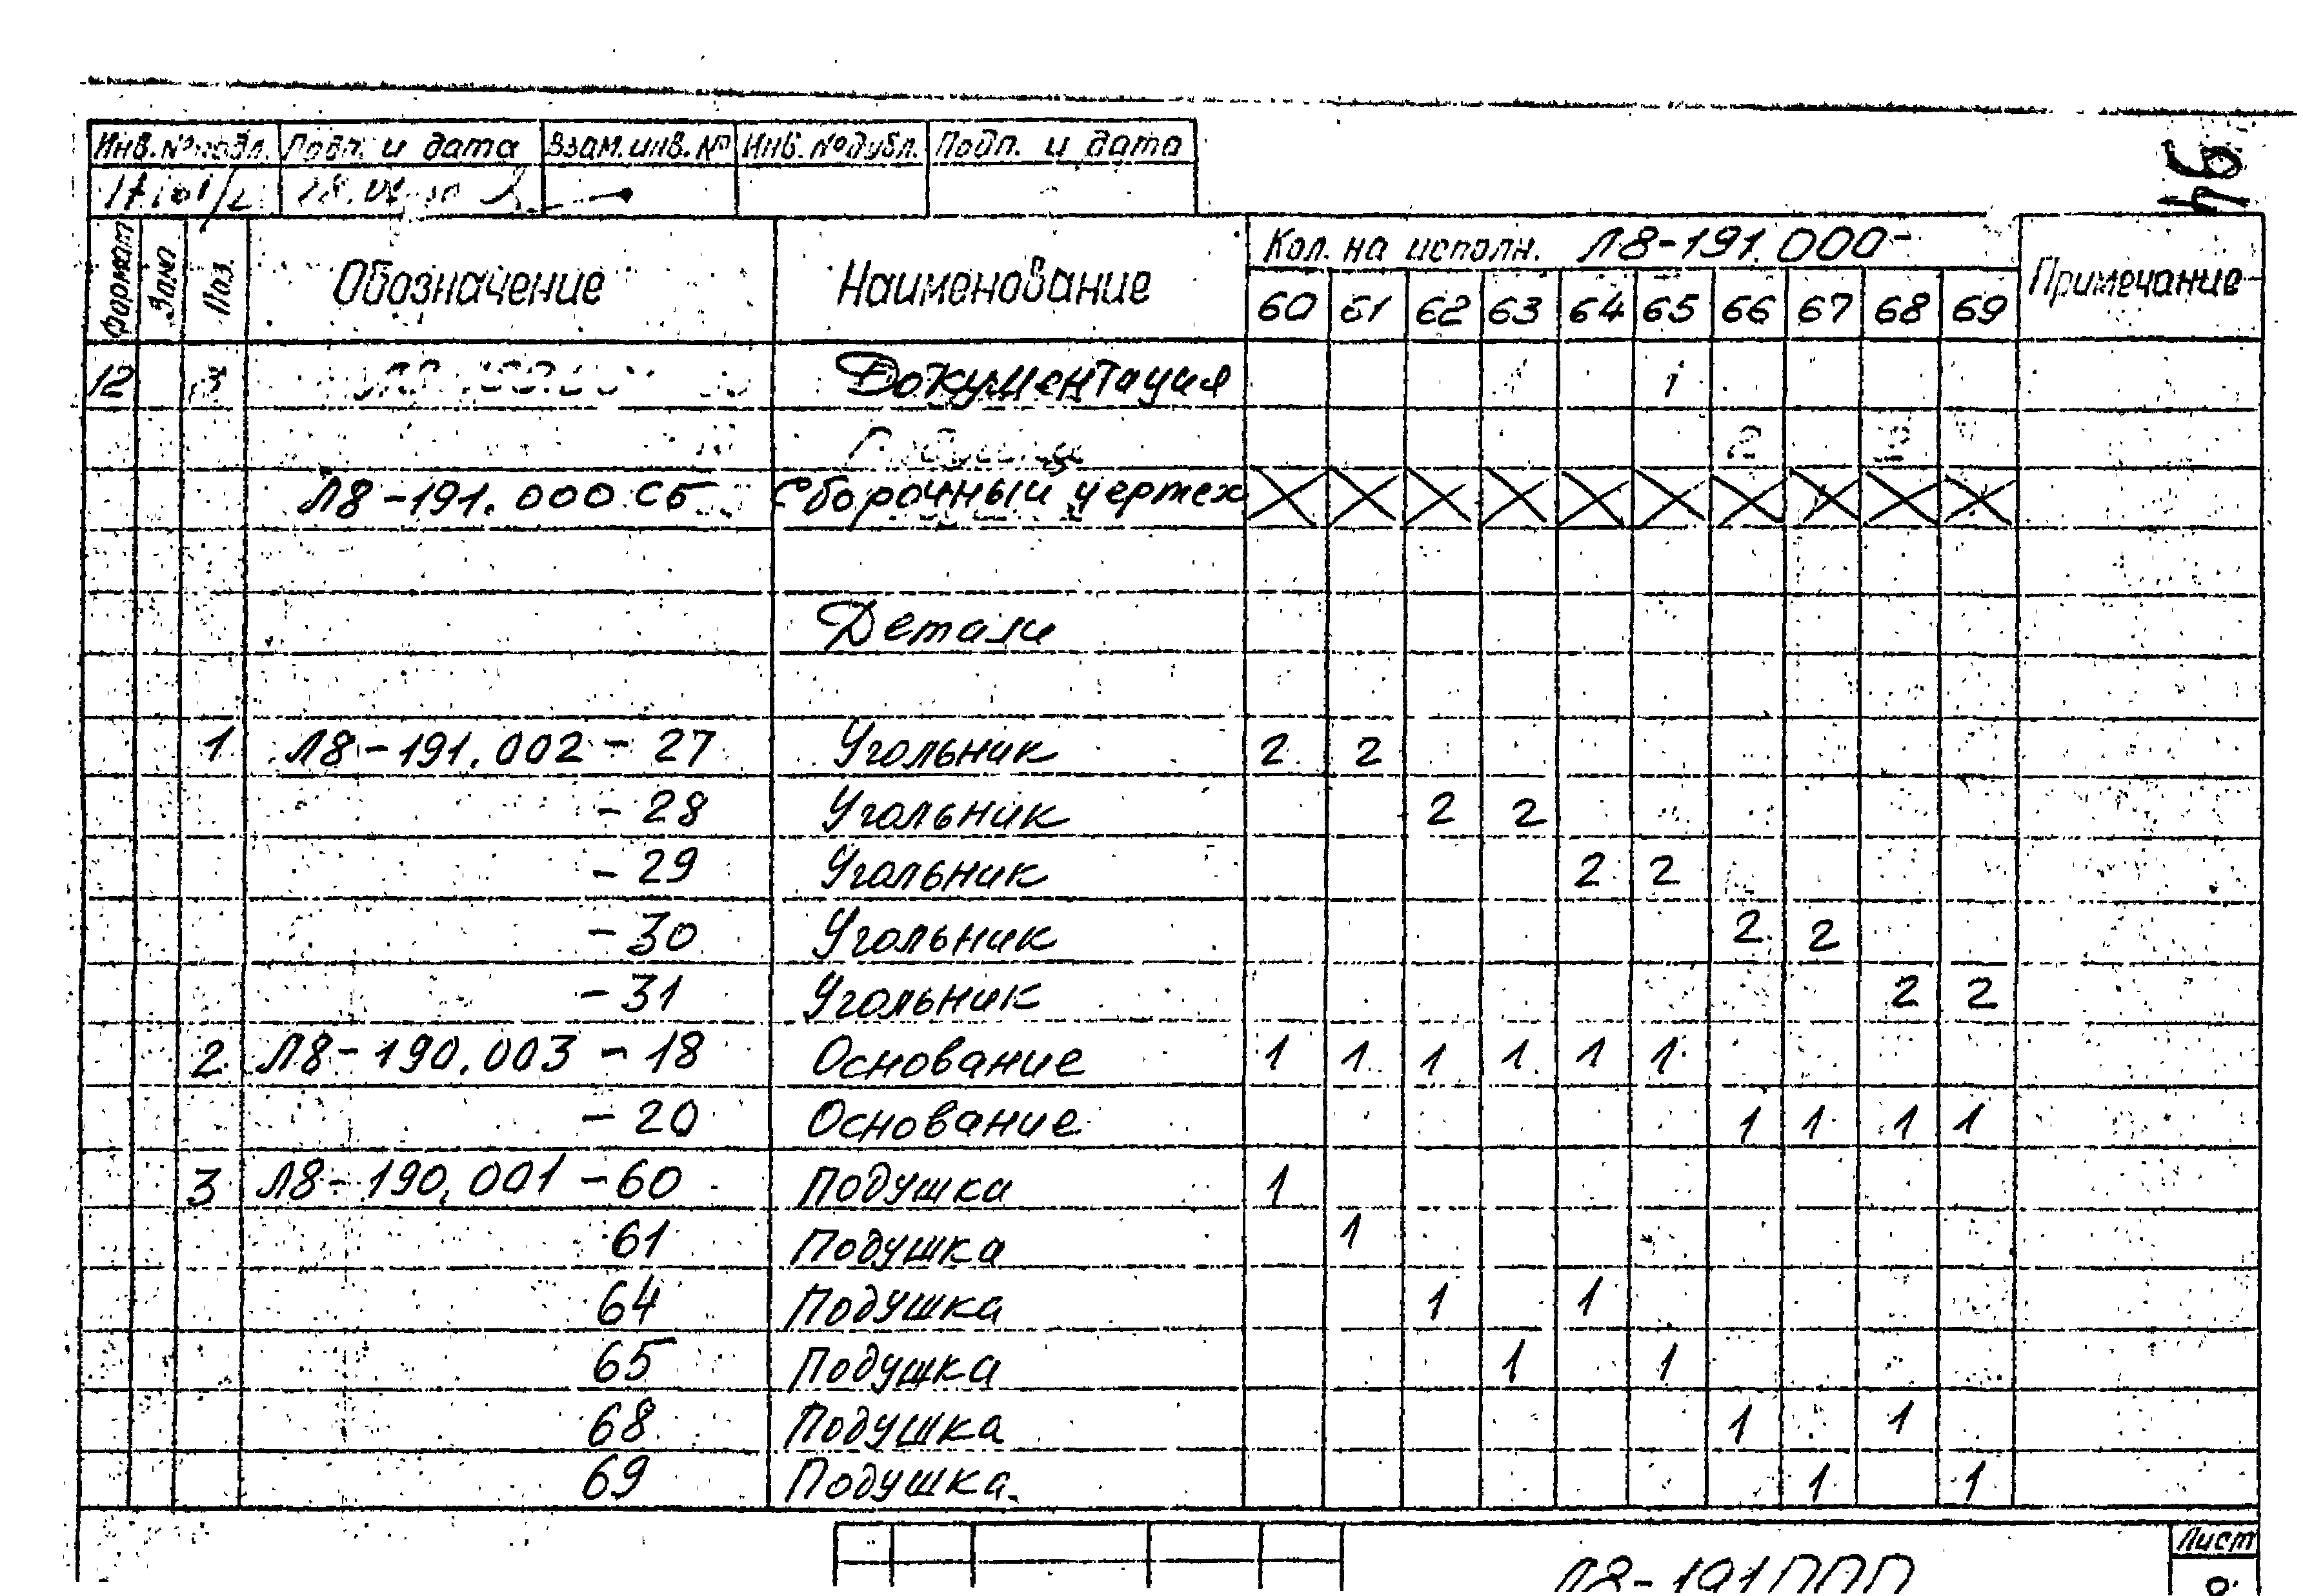 16
Инв. № подл. Подп. и дата Взам. инв. № Инв. № дубл. Подп. и дата
Формат Зона Поз. Обозначение Наименование Кол. на исполн. Л8-191.000- Примечание
60 61 62 63 64 65 66 67 68 69
12 Документация
Л8-191.000 СБ Сборочный чертеж
Детали
1 Л8-191.002-27 Угольник 2 2
-28 Угольник 2 2
-29 Угольник 2 2
-30 Угольник 2 2
-31 Угольник 2 2
2 Л8-190.003-18 Основание 1 1 1 1 1 1
-20 Основание 1 1 1 1
3 Л8-190.001-60 Подушка 1
61 Подушка 1
64 Подушка 1 1
65 Подушка 1 1
68 Подушка 1 1
69 Подушка 1 1
Лист
Л8-191